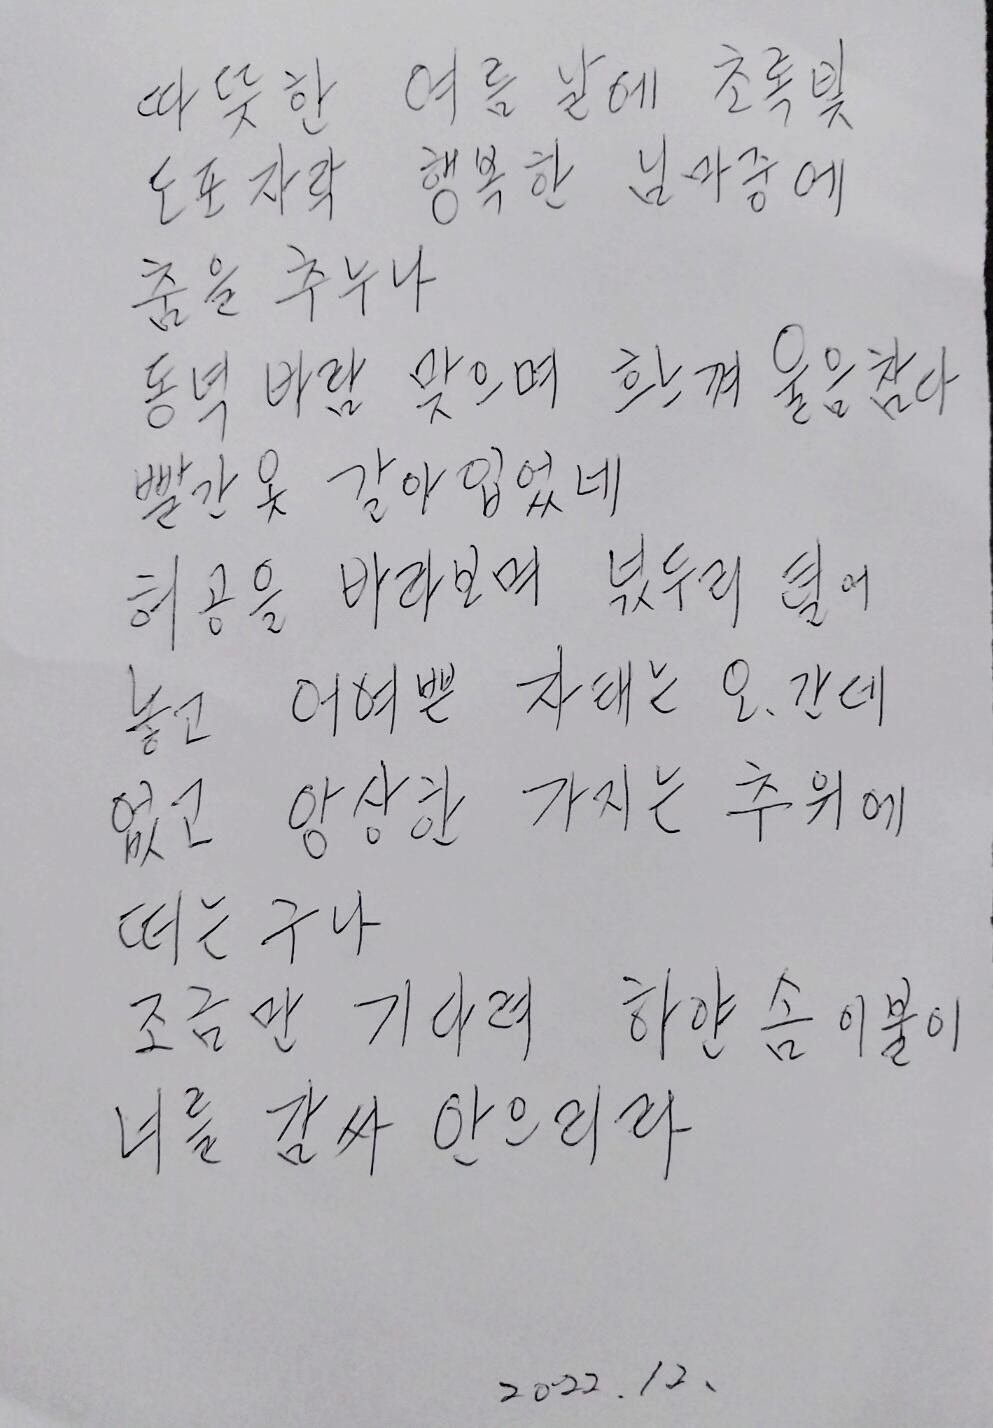 따뜻한 여름 날에 초록빛
도포자락 행복한 님마중에
춤을 추누나
동녘 바람 맞으며 한껏 울음참다
빨간옷 갈아입었네
허공을 바라보며 넋두리 열어
놓고 어여쁜 자태는 오.간데
없고 앙상한 가지는 추위에
떠는구나
조금만 기다려 하얀솜이불이
너를 감싸 안으리라
2022.12.